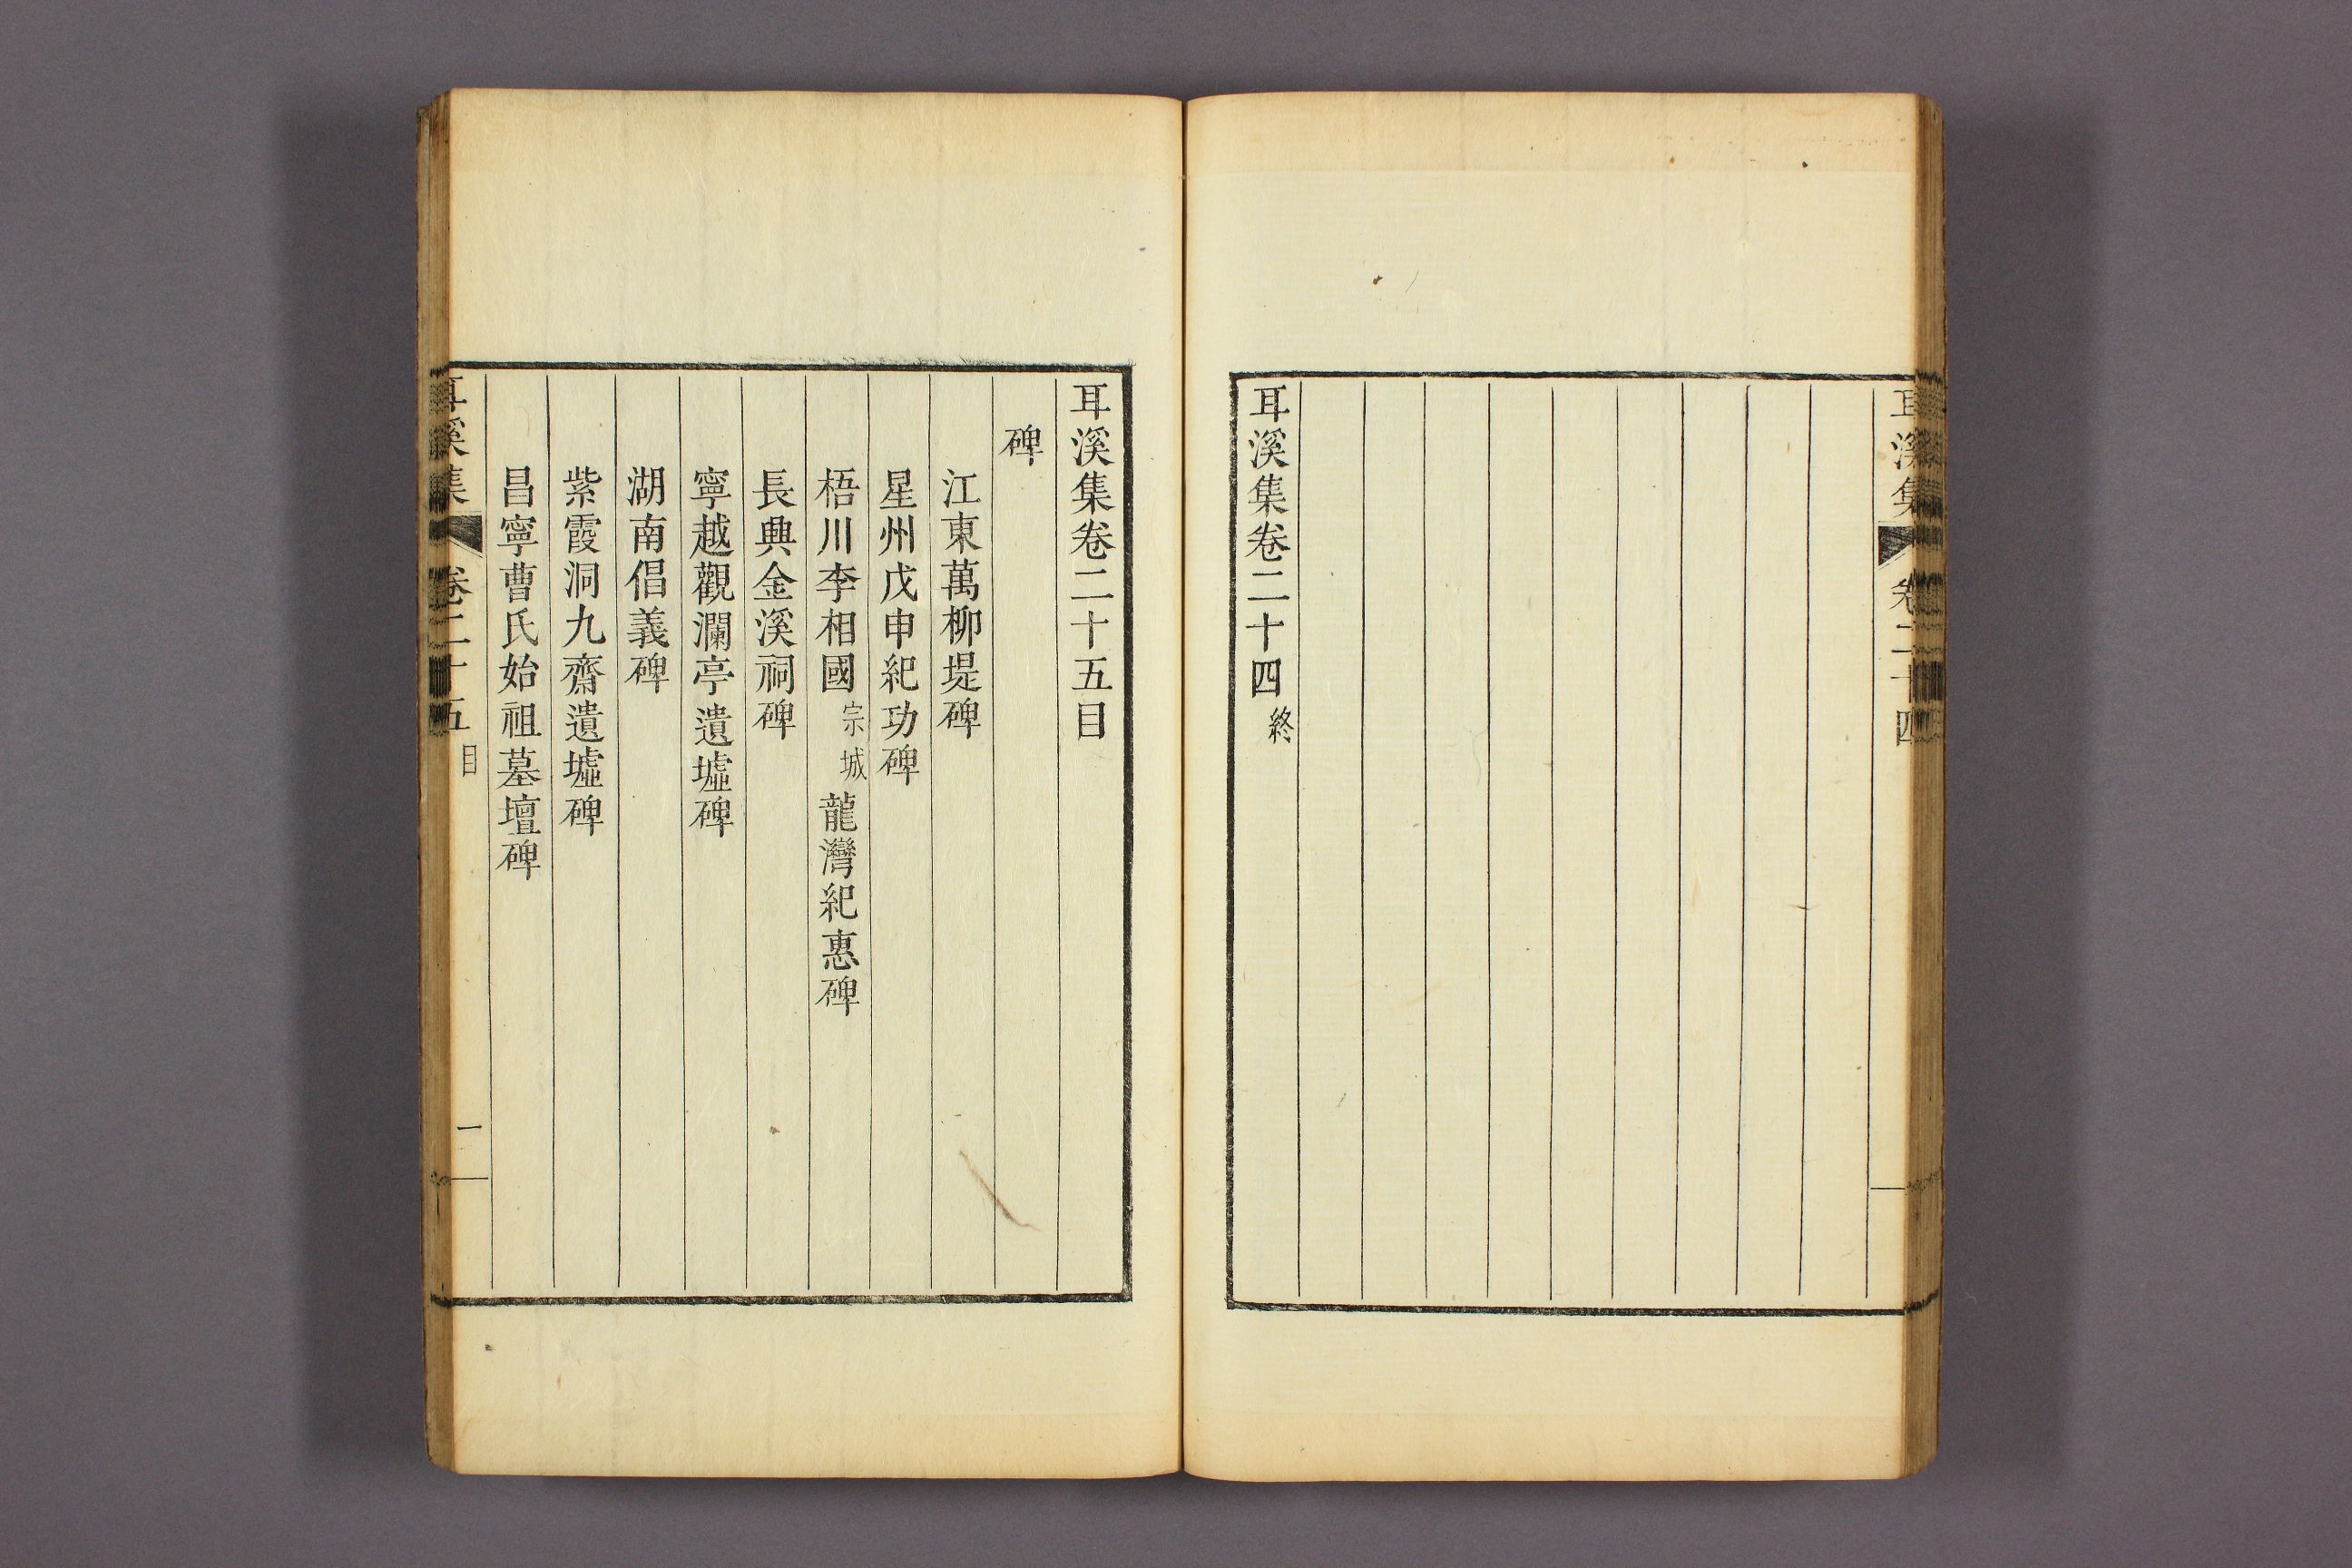 耳溪集
卷二十四
耳溪集卷二十四終
耳溪集卷二十五目
碑
江東萬柳堤碑
星州戊申紀功碑
梧川李相國宗城龍灣紀惠碑
長興金溪祠碑
寧越觀瀾亭遺墟碑
湖南倡義碑
紫霞洞九齋遺墟碑
昌寧曹氏始祖墓壇碑
耳溪集
卷二十五目
一